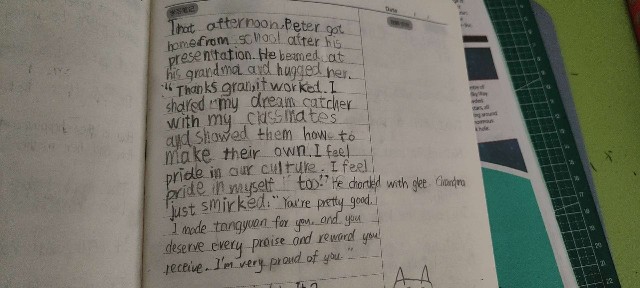 Date
That afternoon, Peter got
home from school after his
presentation. He beamed at
his grandma and hugged her.
"Thanks gran, it worked. I
shared my dream catcher
with my classmates
and showed them how to
make their own. I feel
pride in our culture. I feel
pride in myself too." He chortled with glee. Grandma
just smirked. "You're pretty good.
I made tangyuan for you, and you
deserve every praise and reward you
receive. I'm very proud of you."